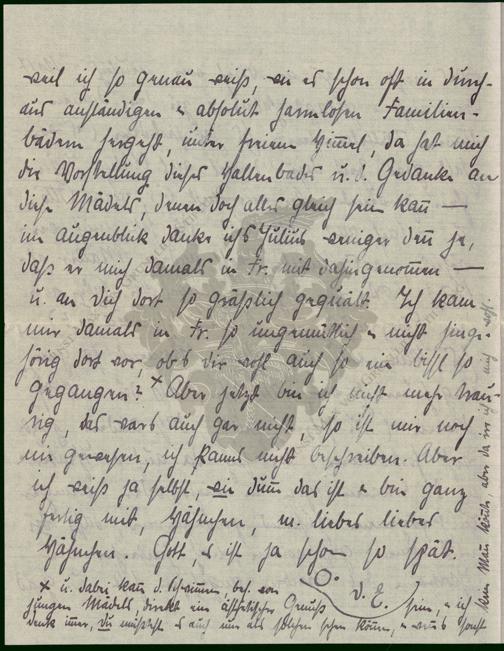 weil ich so genau weiß, wie es schon oft in durch-
aus anständigen u absolut harmlosen Familien-
bädern hergeht, unter freiem Himmel, da hat mich
die Vorstellung dieses Hallenbades u. d. Gedanke an
diese Mädels, denen doch alles gleich sein kan̄ —
im Augenblick danke ichs Julius weniger den̄ je,
daß er mich damals in Fr. mit dahingenom̄en —
u. an Dich dort so gräßlich gequält. Ich kam
mir damals in Fr. so ungemütlich u nicht hinge-
hörig dort vor, ob's dir wohl auch so ein bissl so
gegangen? x Aber jetzt bin ich nicht mehr trau-
rig, das wars auch gar nicht, so ist mir noch
nie gewesen, ich kanns nicht beschreiben. Aber
ich weiß ja selbst, wie dum̄ das ist u bin ganz
fertig mit, Hähnchen, m. liebes liebes
Hähnchen. Gott, es ist ja schon so spät.
D. E.
x u. dabei kan̄ d. Schwim̄en, bes. von
jungen Mädels, direkt ein ästhetischer Genuß sein, u ich
denk im̄er, Du müßtest es auch nur als solchen sehen kön̄en, u